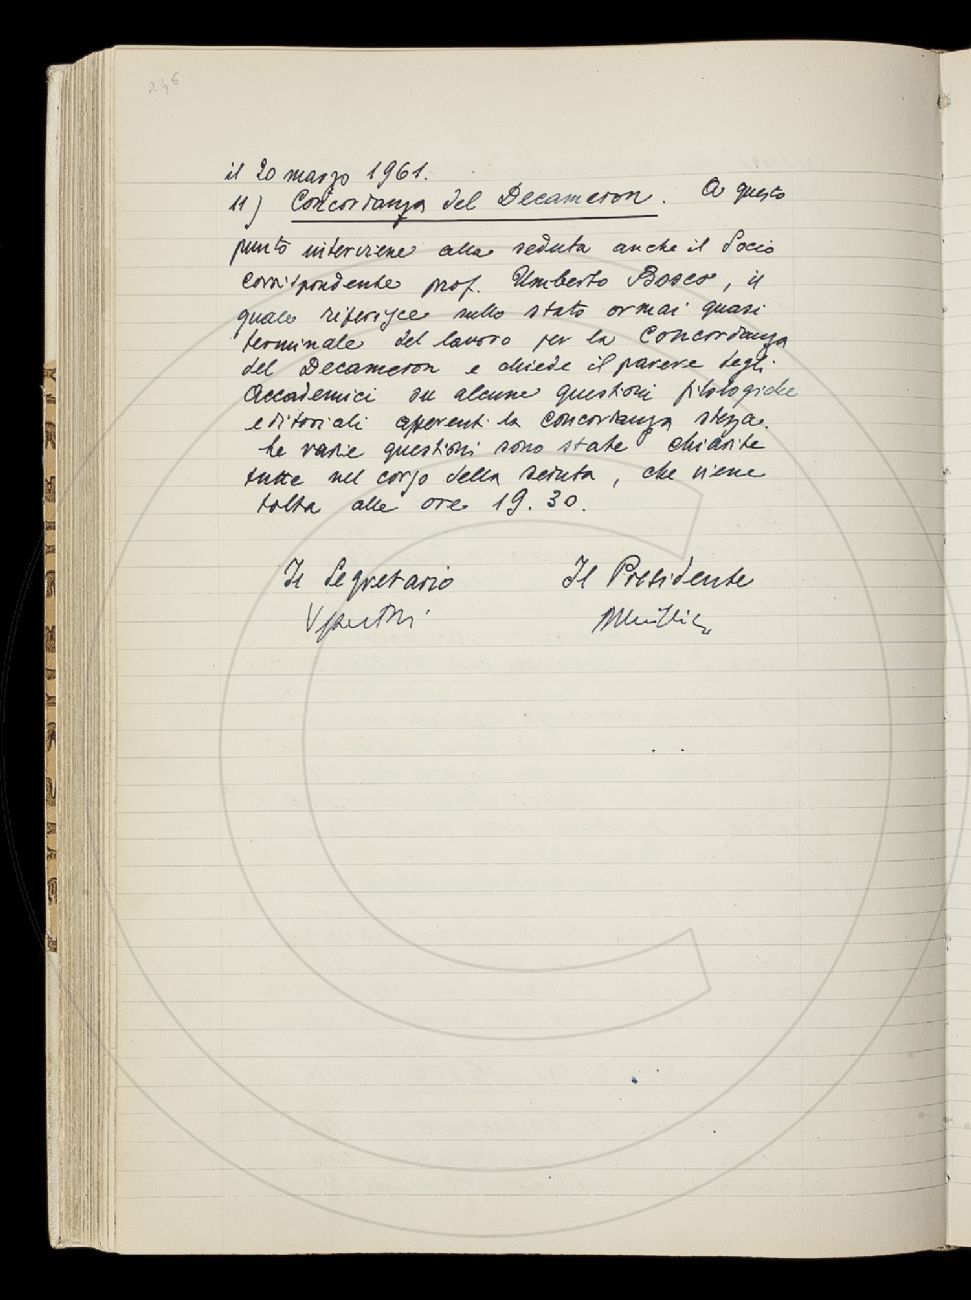 246
il 20 marzo 1961.
11) Concordanza del Decameron. A questo
punto interviene alla seduta anche il Socio
corrispondente prof. Umberto Bosco, il
quale riferisce sullo stato ormai quasi
terminale del lavoro per la Concordanza
del Decameron e chiede il parere degli
Accademici su alcune questioni filologiche
editoriali afferenti la Concordanza stessa.
Le varie questioni sono state chiarite
tutte nel corso della seduta, che viene
tolta alle ore 19.30.
Il Segretario Il Presidente